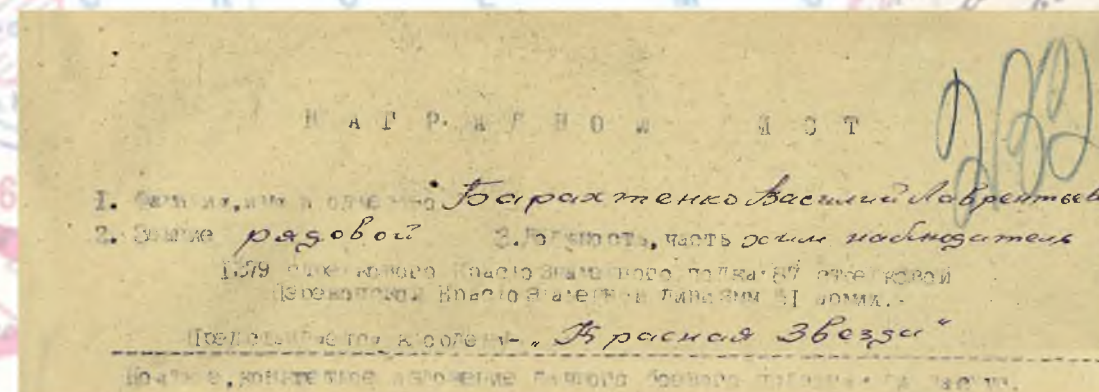 232
НАГРАДНОЙ ЛИСТ
1. Фамилия, имя и отчество Барахтенко Василий Лаврентьев
2. Звание рядовой 3. Должность, часть наблюдатель
1379 стрелкового Краснознаменного полка 87 стрелковой
Перекопской Краснознаменной дивизии 51 армии.-
Представляется к ордену- „Красная Звезда“
Краткое, конкретное изложение личного боевого подвига